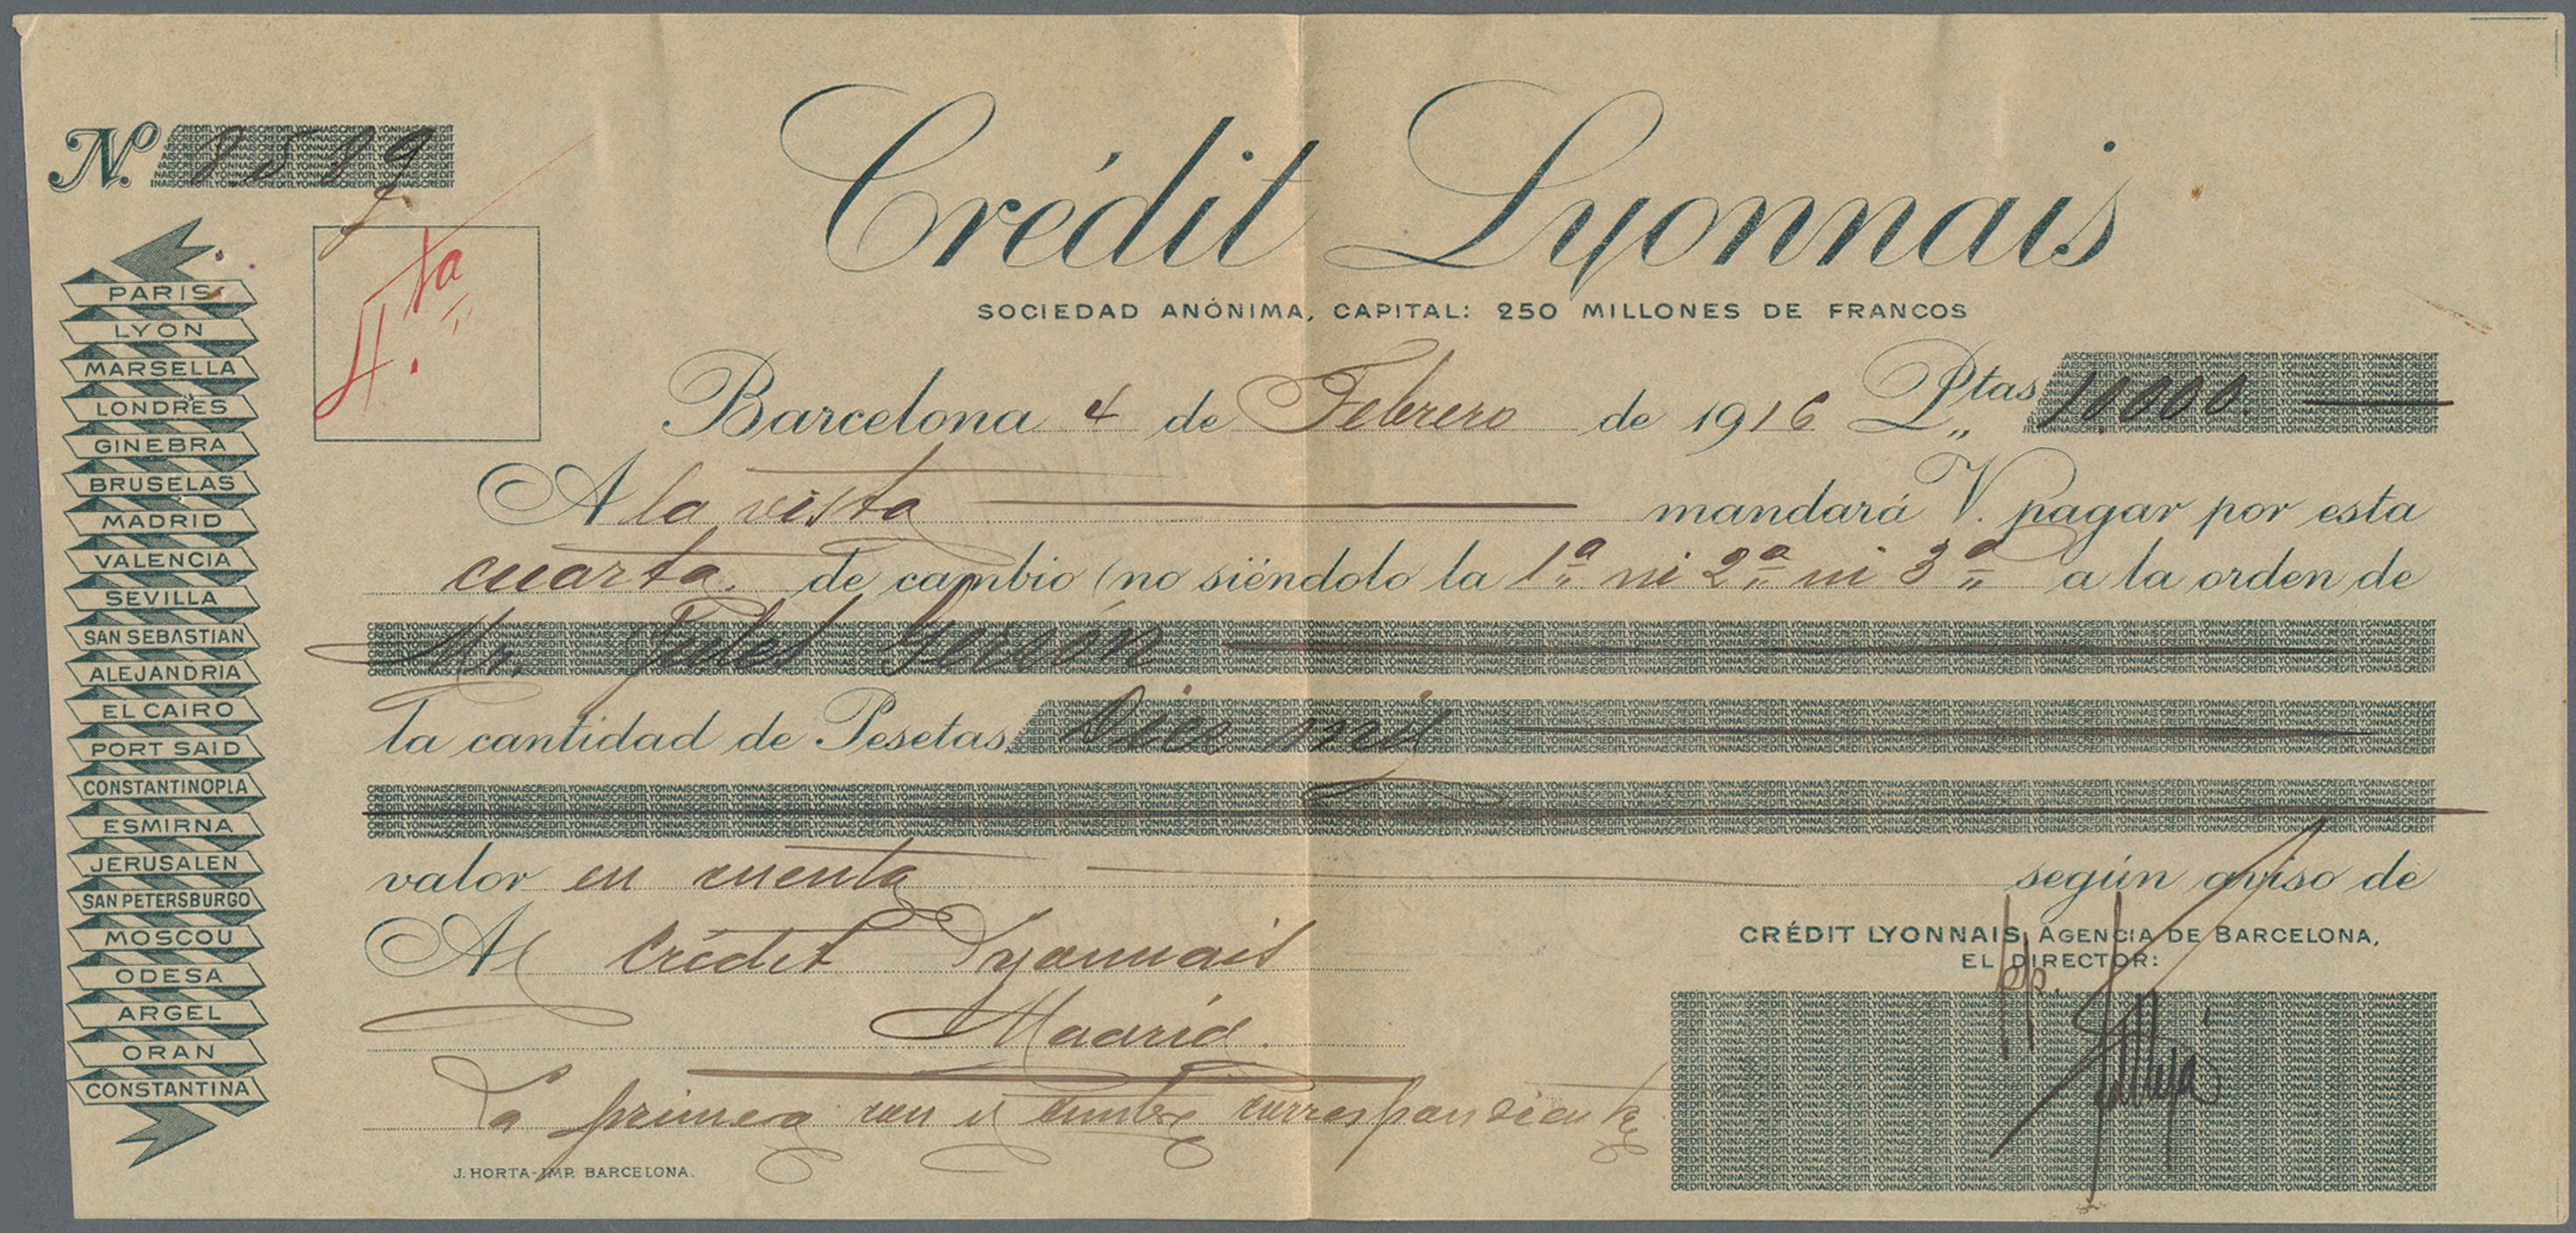 Nº 8589
4.ta
PARIS
LYON
MARSELLA
LONDRES
GINEBRA
BRUSELAS
MADRID
VALENCIA
SEVILLA
SAN SEBASTIAN
ALEJANDRIA
EL CAIRO
PORT SAID
CONSTANTINOPLA
ESMIRNA
JERUSALEN
SAN PETERSBURGO
MOSCOU
ODESA
ARGEL
ORAN
CONSTANTINA
Crédit Lyonnais
SOCIEDAD ANÓNIMA, CAPITAL: 250 MILLONES DE FRANCOS
Barcelona 4 de Febrero de 1916 Ptas 10000.
A la vista mandará V. pagar por esta
cuarta de cambio (no siéndolo la 1ª ni 2ª ni 3ª a la orden de
Mr. Jules Gersón
la cantidad de Pesetas Diez mil
valor en cuenta según aviso de
Al Crédit Lyonnais
Madrid.
La primera con el timbre correspondiente
CRÉDIT LYONNAIS, AGENCIA DE BARCELONA,
EL DIRECTOR:
pp.
J. HORTA-IMP. BARCELONA.